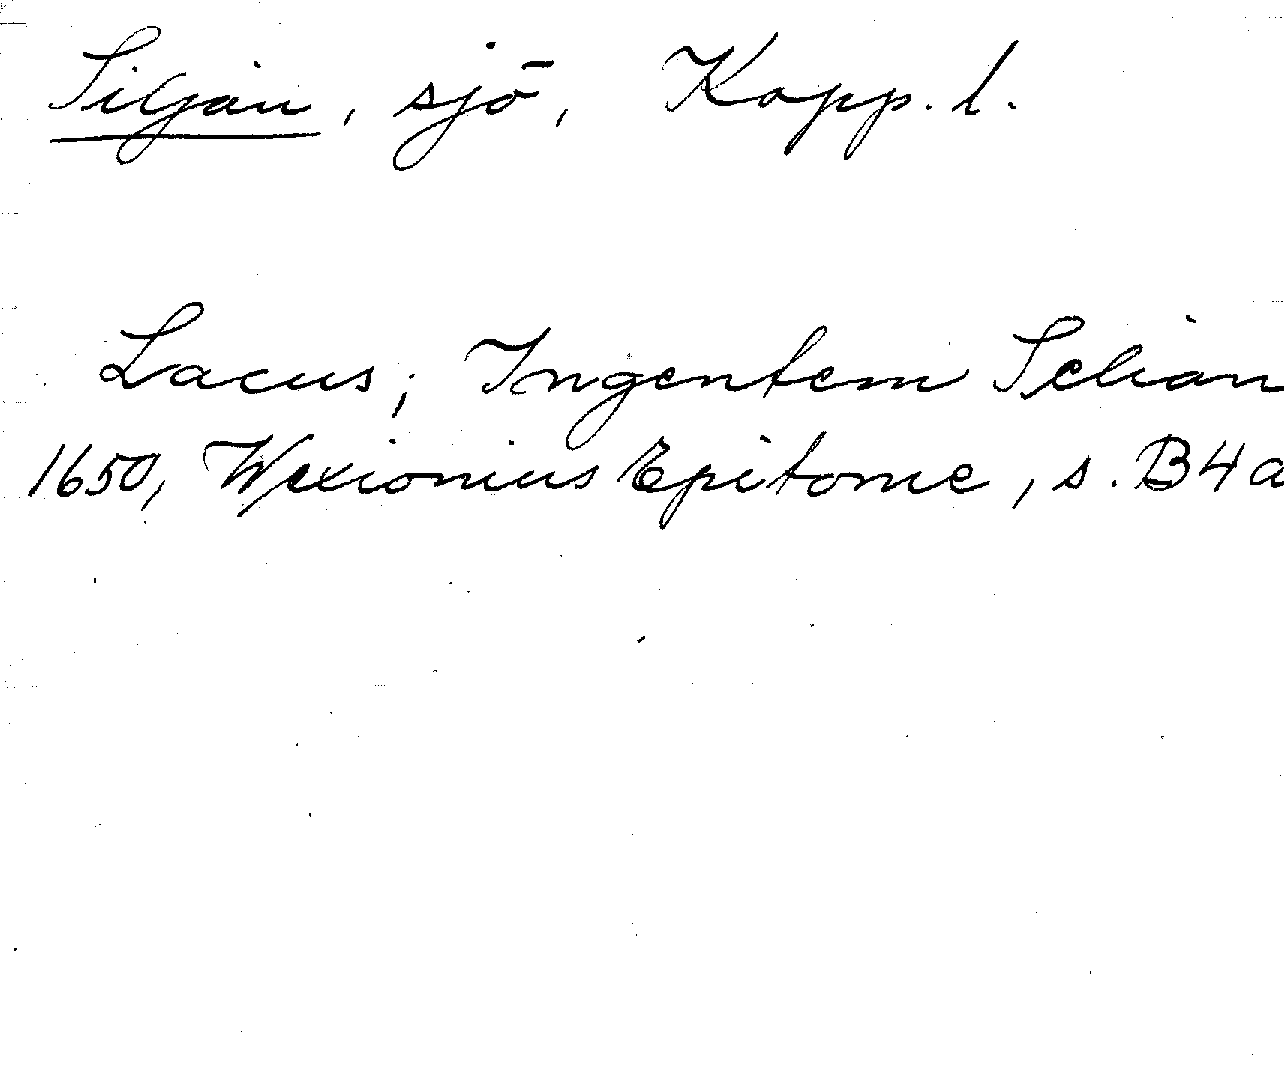 Siljan, sjö, Kopp. l.
Lacus; Ingentem Selian
1650, Wexionius Epitome, s. B4a